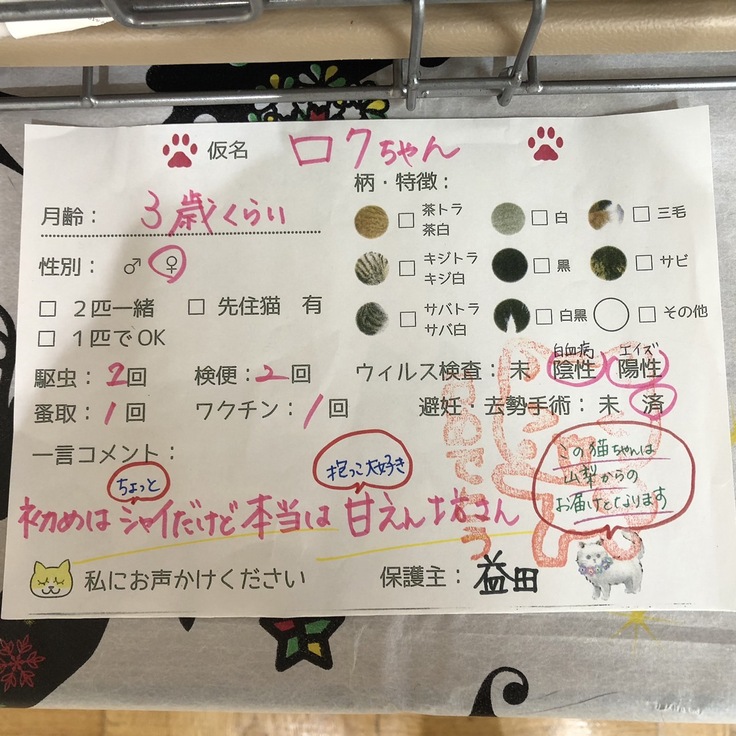 仮名 ロクちゃん
月齢： 3歳くらい
柄・特徴：
□ 茶トラ 茶白 □ 白 □ 三毛
□ キジトラ キジ白 □ 黒 □ サビ
□ サバトラ サバ白 □ 白黒 □ その他
性別： ♂ ♀
□ 2匹一緒 □ 先住猫 有
□ 1匹でOK
駆虫： 2回 検便：2回
蚤取： 1回 ワクチン： 1回
白血病 エイズ
ウィルス検査： 未 陰性 陽性
避妊・去勢手術： 未 済
一言コメント：
ちょっと
抱っこ大好き
初めはシャイだけど本当は甘えん坊さん
この猫ちゃんは
山梨からの
お届けとなります
私にお声かけください 保護主： 益田